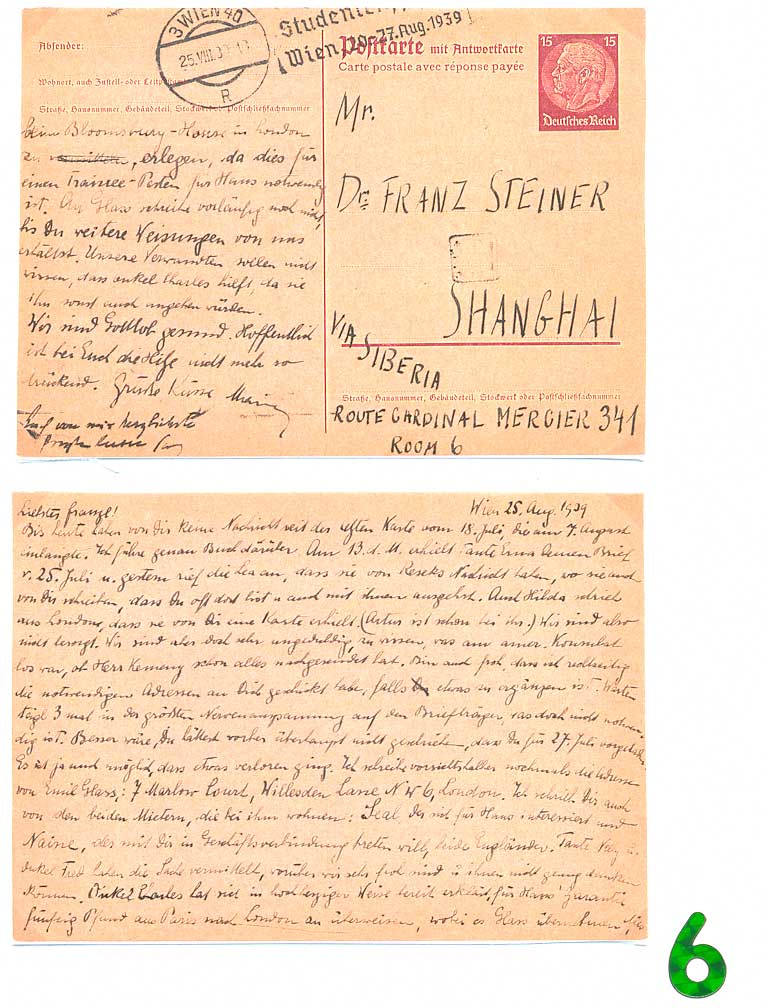 3 WIEN 40
25.VIII.39
R
Studenten
Wien, 20.-27. Aug. 1939
Absender:
Wohnort, auch Zustell- oder Leitpostamt
Straße, Hausnummer, Gebäudeteil, Stockwerk oder Postschließfachnummer
Postkarte mit Antwortkarte
Carte postale avec réponse payée
15 15
Deutsches Reich
Mr.
Dr. FRANZ STEINER
SHANGHAI
VIA SIBERIA
Straße, Hausnummer, Gebäudeteil, Stockwerk oder Postschließfachnummer
ROUTE CARDINAL MERCIER 341
ROOM 6
beim Bloomsbury-House in London
zu erlegen, da dies für
einen Trainee-Posten für Hans notwendig
ist. An Glass schreibe vorläufig noch nicht,
bis Du weitere Weisungen von uns
erhältst. Unsere Verwandten sollen nicht
wissen, dass Onkel Charles hilft, da sie
ihn sonst auch angehen würden.
Wir sind Gottlob gesund. Hoffentlich
ist bei Euch die Hitze nicht mehr so
drückend. Küsse
Euch von mir herzlichste
Wien 25. Aug. 1939
Liebster Franzl!
Bis heute haben von Dir keine Nachricht seit der ersten Karte vom 18. Juli, die am 7. August
einlangte. Ich führe genau Buch darüber. Am 13. d. M. erhielt Tante Erna Deinen Brief
v. 25. Juli u. gestern rief die an, dass sie von Nachricht haben, wo sie auch
von Dir schreiben, dass Du oft dort bist u. auch mit ihnen ausgehst. Auch Hilda schrieb
aus London, dass sie von Dir eine Karte erhielt. (Artur ist schon bei ihr.) Wir sind also
nicht besorgt. Wir sind aber doch sehr ungeduldig, zu wissen, was am amer. Konsulat
los war, ob Herr Kemeny schon alles nachgesendet hat. Bin auch froh, dass ich rechtzeitig
die notwendigen Adressen an Dich geschickt habe, falls etwas zu ergänzen ist. Warten
tägl 3 mal in der größten Nervenanspannung auf den Briefträger, was doch nicht notwen-
dig ist. Besser wäre, Du hättest vorher überhaupt nicht geschrieben, dass Du für 27. Juli
Es ist ja auch möglich, dass etwas verloren ging. Ich schreibe vorsichtshalber nochmals die Adresse
von Emil Glass: 7 Marlow Court, Willesden Lane N W 6, London. Ich schrieb Dir auch
von den beiden Mietern, die bei ihm wohnen: Seal, der sich für Hans interessiert und
Naine, der mit Dir in Geschäftsverbindung treten will, beide Engländer. Tante
Onkel Fred haben die Sache vermittelt, worüber wir sehr froh sind u. ihnen nicht genug danken
können. Onkel Charles hat sich in hochherziger Weise bereit erklärt, für Hans
fünfzig Pfund aus Paris nach London zu überweisen, wobei es Glass übernehmen
6